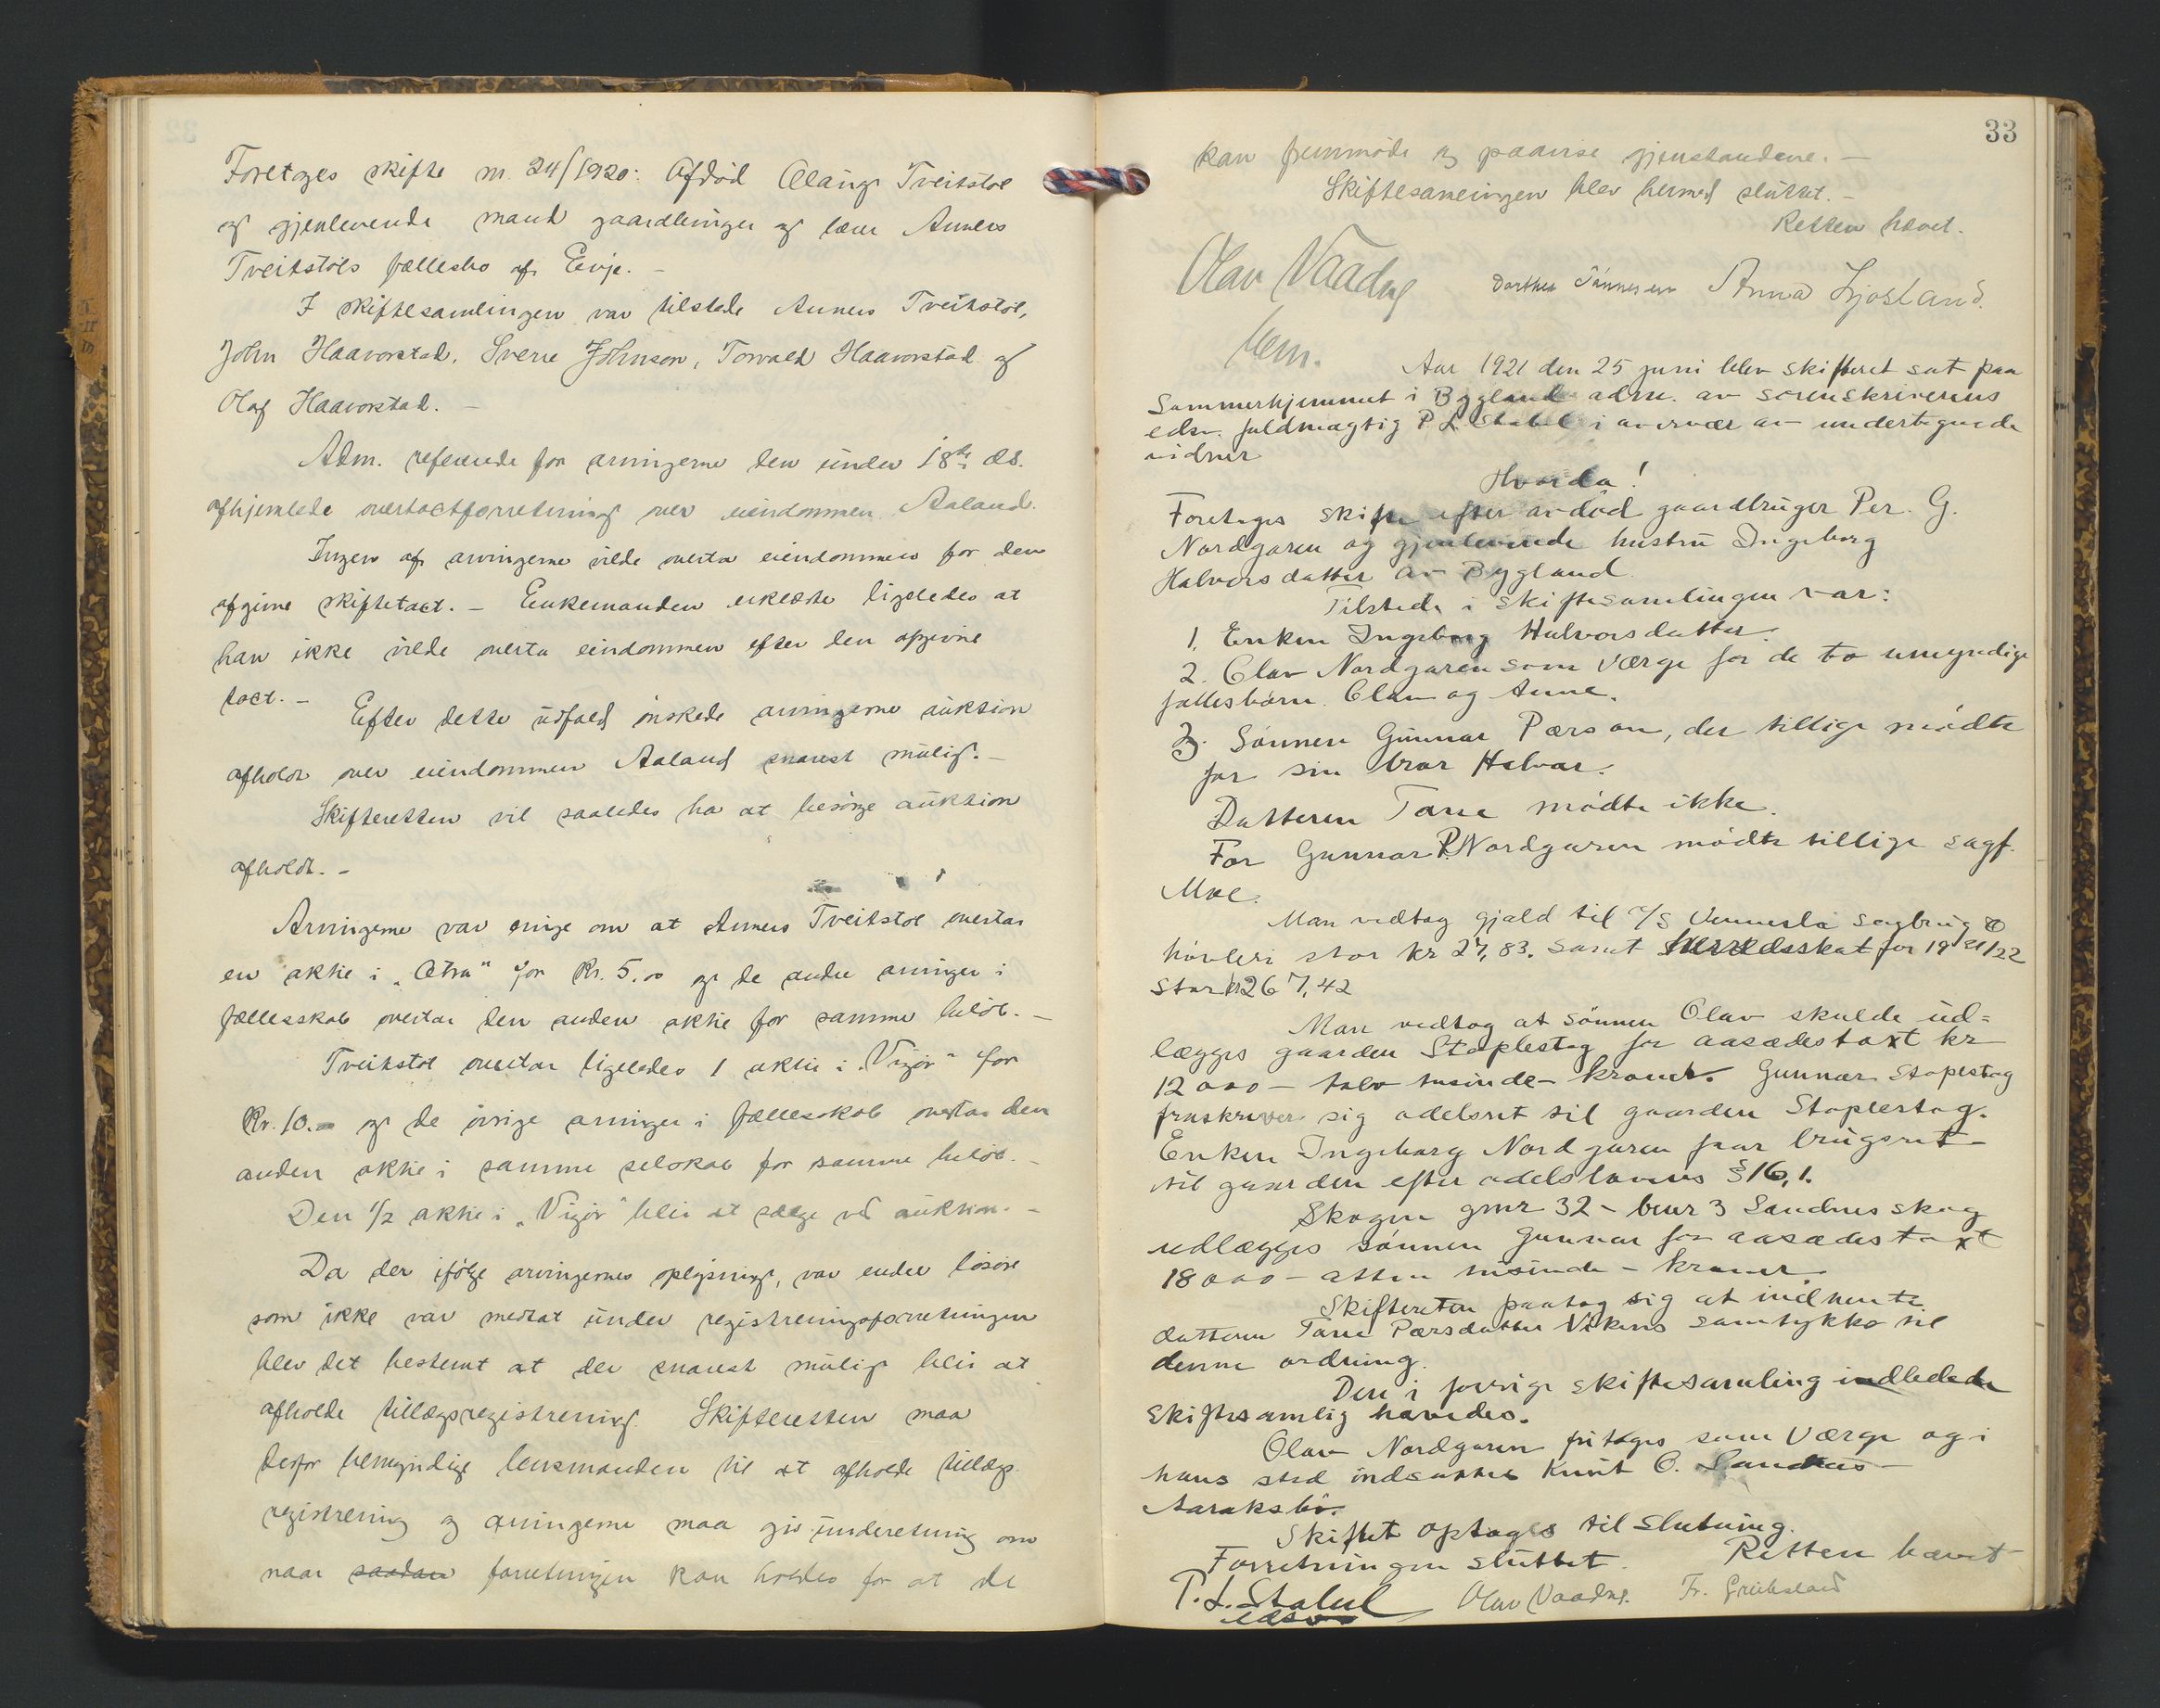 Foretages skifte nr. 24/1920: Afdød Olaug Tveitstøl
og gjenlevende mand gaardbruger og lærer Anners
Tveitstøls fællesbo af Evje. –
I skiftesamlingen var tilstede Anners Tveitstøl,
John Haavorstad, Sverre Johnson, Torvald Haavorstad og
Olaf Haavorstad. –
Adm. refererede for arvingerne den under 18de ds.
afhjemlede overtaxtforretning over eiendommen Aaland.
Ingen af arvingerne vilde overta eiendommen for den
afgivne skiftetaxt. – Enkemanden erklærte ligeledes at
han ikke vilde overta eiendommen efter den afgivne
taxt. –
Efter dette udfald ønskede arvingerne auktion
afholdt over eiendommen Aaland snarest mulig. –
Skifteretten vil saaledes ha at besørge auktion
afholdt. –
Arvingerne var enige om at Anners Tveitstøl overtar
en aktie i „Ætra" for Kr. 5.00 og de andre arvinger i
fællesskab overtar den anden aktie for samme beløb. –
Tveitstøl overtar ligeledes 1 aktie i „Vigør" for
Kr. 10.00 og de øvrige arvinger i fællesskab overtar den
anden aktie i samme selskab for samme beløb. –
Den 1/2 aktie i „Vigør" blir at sælge ved auktion. –
Da der ifølge arvingernes oplysning, var endel løsøre
som ikke var medtat under registreringsforretningen
blev det bestemt at der snarest mulig blir at
afholde tillægsregistrering. Skifteretten maa
derfor bemyndige lensmanden til at afholde tillægs
registrering og arvingerne maa gis underetning om
naar saadan forretningen kan holdes for at de
33
kan fremmøde og paavise gjenstandene. –
Skiftesamlingen blev hermed sluttet. –
Retten hævet.
Olav Vaadne Dorthea Tønnesen Anna Ljosland.
Aar 1921 den 25 juni blev skifteret sat paa
Sommerhjemmet i Bygland adm. av sorenskriverens
edsv. fuldmægtig P. L. Stabel i overvær av undertegnede
vidner
Hvorda!
Foretages skifte efter avdød gaardbruger Per. G.
Nordgaren og gjenlevende hustru Ingeborg
Halvorsdatter av Bygland.
Tilstede i skiftesamlingen var:
1. Enken Ingeborg Halvorsdatter.
2. Olav Nordgaren som værge for de to umyndige
fællesbørn. Olav og Anne.
3. Sønnen Gunnar Pærson, der tillige mødte
for sin bror Halvor.
Datteren Tone mødte ikke.
For Gunnar P. Nordgaren mødte tillige sagf.
Moe.
Man vedtog gjæld til A/S Vennesla sagbrug &
høvleri stor kr 27,83. samt herredsskat for 1921/22
stor kr 267,42
Man vedtog at sønnen Olav skulde ud=
lægges gaarden Stoplestog for aasædestaxt kr
12000 – tolv tusinde – kroner. Gunnar Stoplestog
fraskriver sig odelsret til gaarden Stoplestog.
Enken Ingeborg Nordgaren faar brugsret
til gaarden efter odelslovens § 16,1.
Skogen gnr 32 – bnr 3 Sandnes skog
udlægges sønnen Gunnar for aasædestaxt
18000 – atten tusinde – kroner.
Skifteretten paatog sig at indhente
datteren Tone Pærsdatter Vikens samtykke til
denne ordning.
Den i forrige skiftesamling indledede
skiftesamlig hævedes.
Olav Nordgaren fritages som værge og i
hans sted indsættes Knut O. Sandnes
Aaraksbø.
Skiftet optages til slutning.
Forretningen sluttet. Retten hævet
P. L. Stabel Olav Vaadne. Fr. Greibsland
edsv.